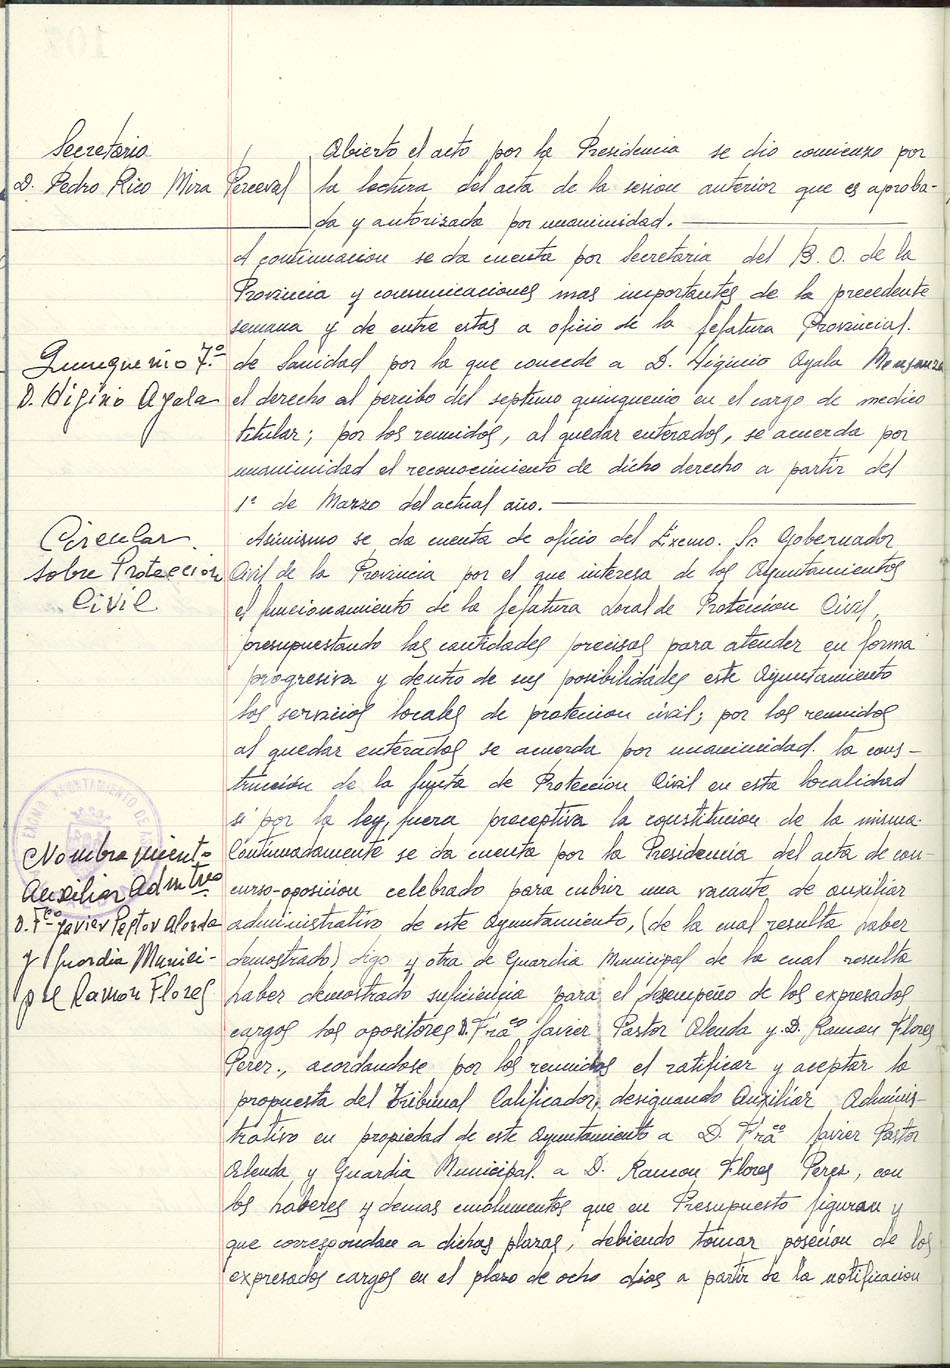 Secretario
D. Pedro Rico Mira Perceval
Abierto el acto por la Presidencia se dio comienzo por
la lectura del acta de la sesion anterior que es aproba-
da y autorizada por unanimidad.
A continuacion se da cuenta por Secretaria del B. O. de la
Provincia y comunicaciones mas importantes de la precedente
semana y de entre estas a oficio de la Jefatura Provincial.
Quinquenio 7º
D. Higinio Ayala
de Sanidad, por la que concede a D. Higinio Ayala
el derecho al percibo del septimo quinquenio en el cargo de medico
titular; por los reunidos, al quedar enterados, se acuerda por
unanimidad el reconocimiento de dicho derecho a partir del
1º de Marzo del actual año.
Circular
sobre Proteccion
Civil
Asimismo se da cuenta de oficio del Exemo. Sr. Gobernador
Civil de la Provincia por el que interesa de los Ayuntamientos
el funcionamiento de la Jefatura Local de Proteccion Civil,
presupuestando las cantidades precisas para atender en forma
progresiva y dentro de sus posibilidades este Ayuntamiento
los servicios locales de protecion civil; por los reunidos
al quedar enterados se acuerda por unanimidad. la cons-
trucción de la junta de Protección Civil en esta localidad
si por la ley, fuera preceptiva la constitucion de la misma.
Nombramiento
Auxiliar Admtvo
D. Fco Javier Pastor Alenda
y Guardia Munici-
pal Ramon Flores
Continuadamente se da cuenta por la Presidencia del acta de con-
curso-oposición celebrado para cubrir una vacante de auxiliar
administrativo de este Ayuntamiento, (de la cual resulta haber
demostrado) digo y otra de Guardia Municipal de la cual resulta
haber demostrado suficiencia para el desempeño de los expresados
cargos los opositores D. Fraco Javier Pastor Alenda y D. Ramon Flores
Perez., acordandose por los reunidos el ratificar y aceptar la
propuesta del Tribunal Calificador, designando Auxiliar Adminis-
trativo en propiedad de este Ayuntamiento a D. Fraco Javier Pastor
Alenda y Guardia Municipal. a D. Ramon Flores Perez, con
los haberes y demas emolumentos que en Presupuesto figuran y
que correspondan a dichas plazas, debiendo tomar posecion de los
expresados cargos en el plazo de ocho dias a partir de la notificacion